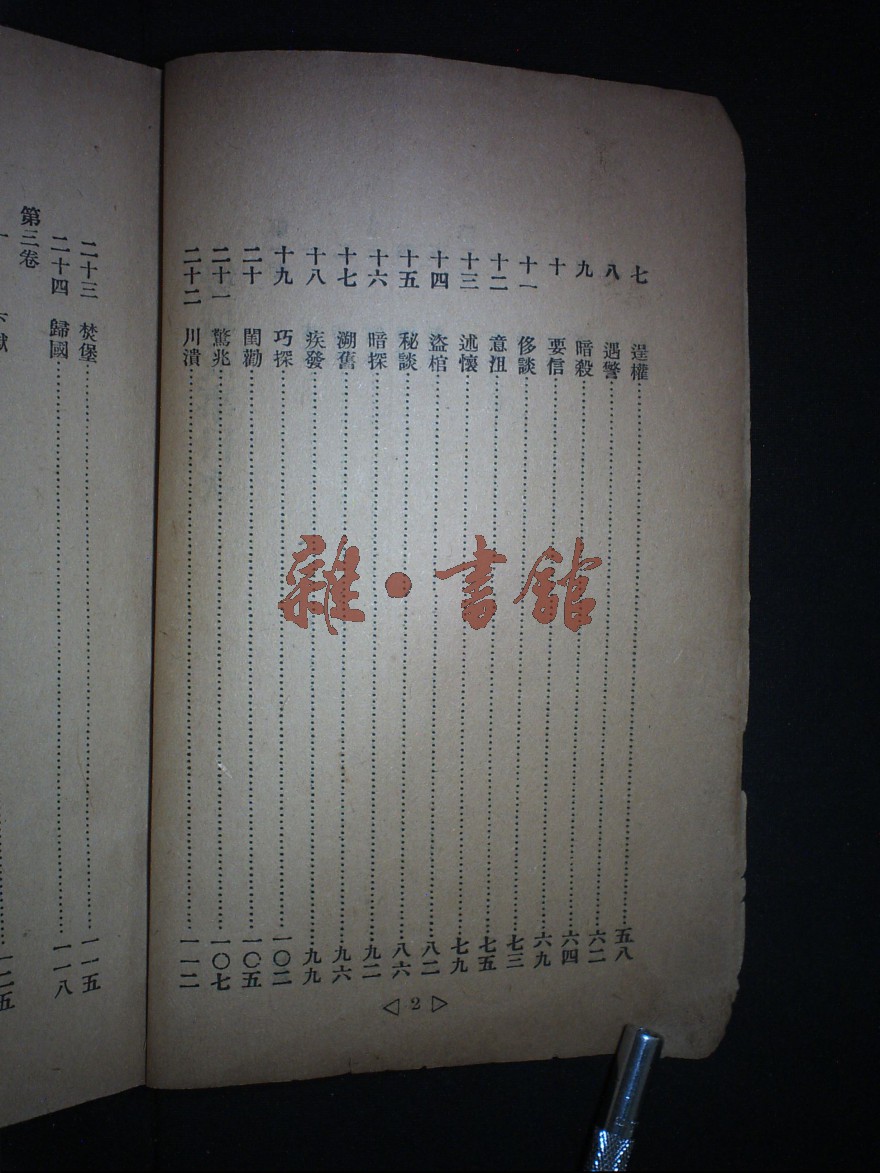 七 逞權 五八
八 遇警 六二
九 暗殺 六四
十 要信 六九
十一 侈談 七三
十二 意沮 七五
十三 述懷 七九
十四 盜棺 八二
十五 秘談 八六
十六 暗探 九二
十七 溯舊 九六
十八 疾發 九九
十九 巧探 一〇二
二十 閨勸 一〇五
二十一 驚兆 一〇七
二十二 川潰 一一二
◁ 2 ▷
二十三 焚堡 一一五
二十四 歸國 一一八
第三卷
一 一二五
雜·書館